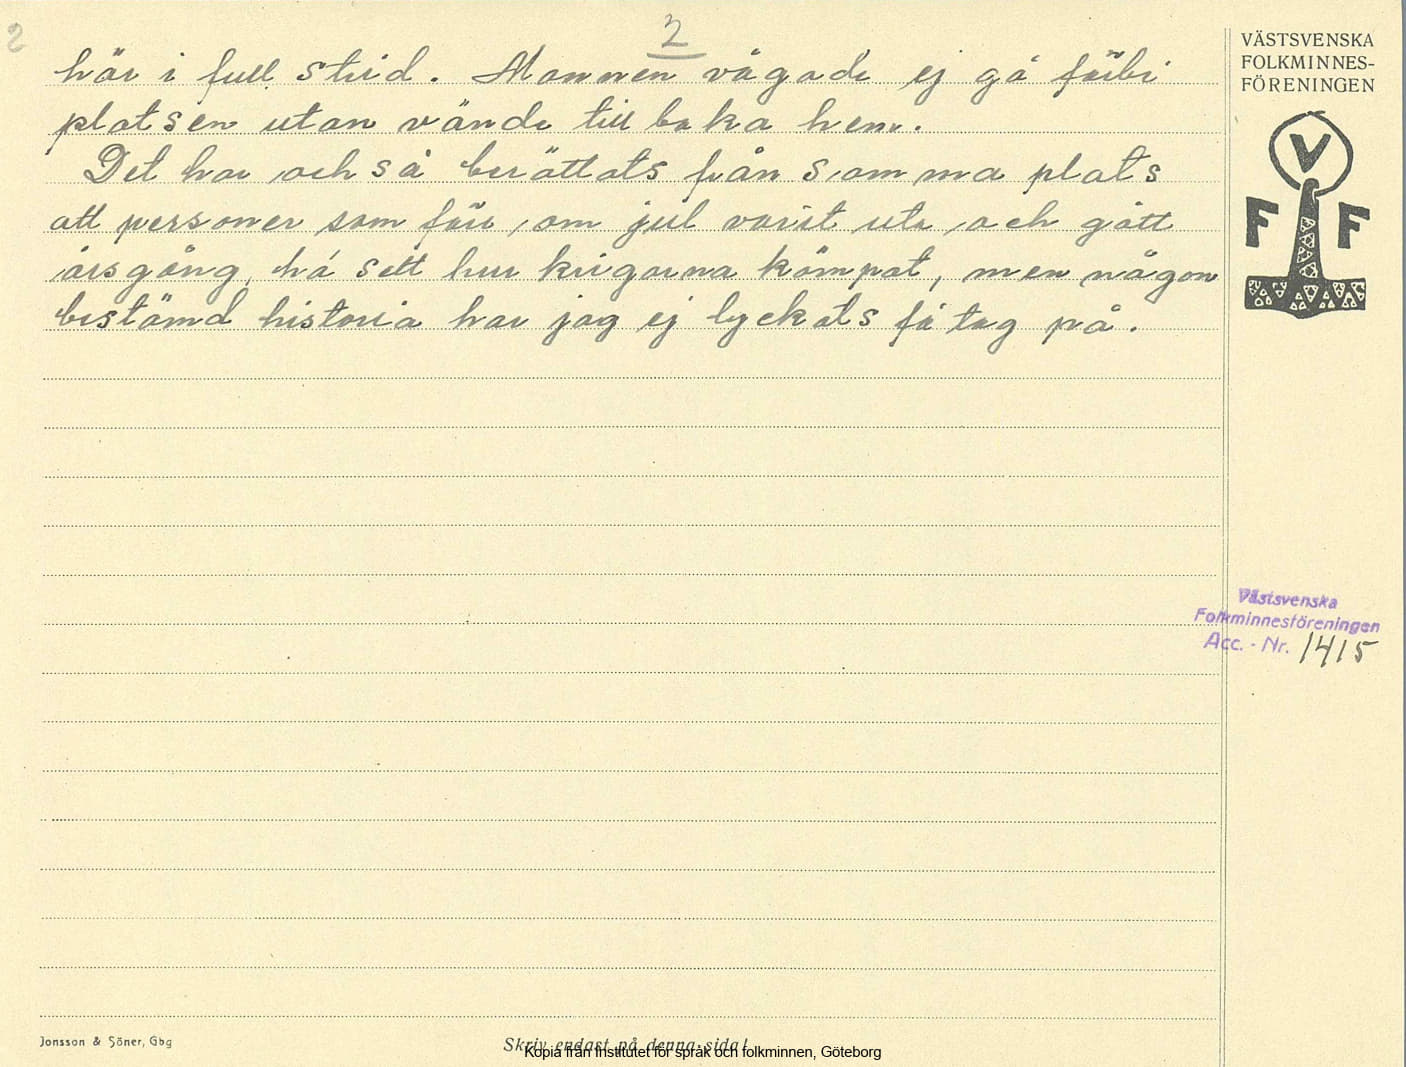 2
2
här i full strid. Mannen vågade ej gå förbi
platsen utan vände tillbaka hem.
Det har också berättats från samma plats
att personer som förr om jul varit ute och gått
årsgång, há sett hur krigarna kämpat, men någon
bestämd historia har jag ej lyckats få tag på.
VÄSTSVENSKA
FOLKMINNES-
FÖRENINGEN
V
F F
Västsvenska
Folkminnesföreningen
Acc. - Nr. 1415
Jonsson & Söner, Gbg
Skriv endast på denna sida!
Kopia från Institutet för språk och folkminnen, Göteborg